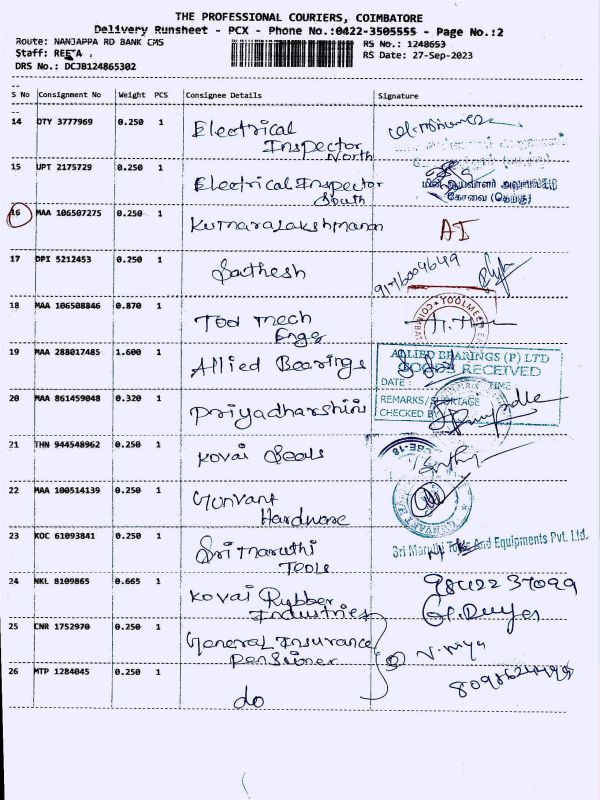 THE PROFESSIONAL COURIERS, COIMBATORE
Delivery Runsheet - PCX - Phone No.:0422-3505555 - Page No.:2
Route: NANJAPPA RD BANK CMS
RS No.: 1248653
Staff: REETA .
RS Date: 27-Sep-2023
DRS No.: DCJB124865302
S No Consignment No Weight PCS Consignee Details Signature
14 DTY 3777969 0.250 1 Electrical
Inspector
North
15 UPT 2175729 0.250 1 Electrical Inspector
South
கோவை (தெற்கு)
16 MAA 106507275 0.250 1 Kumaralakshmanan AI
17 DPI 5212453 0.250 1 Sathesh 9176009649
18 MAA 106508846 0.870 1 Tool mech
Engg
TOOLMECH
19 MAA 288017485 1.600 1 Allied Bearings
ALLIED BEARINGS (P) LTD
GOODS RECEIVED
DATE : TIME :
REMARKS/SHORTAGE
CHECKED BY
20 MAA 861459048 0.320 1 Priyadharshini
21 THN 944548962 0.250 1 Kovai Seals
CBE-18
22 MAA 100514139 0.250 1 Gunvant
Hardware
23 KOC 61093841 0.250 1 Sri Maruthi
Tools
Sri Maruthi Tools And Equipments Pvt. Ltd.
24 NKL 8109865 0.665 1 Kovai Rubber
Industries
9842237099
25 CNR 1752970 0.250 1 General Insurance
Pensioner
② N. Priya
26 MTP 1284045 0.250 1 do